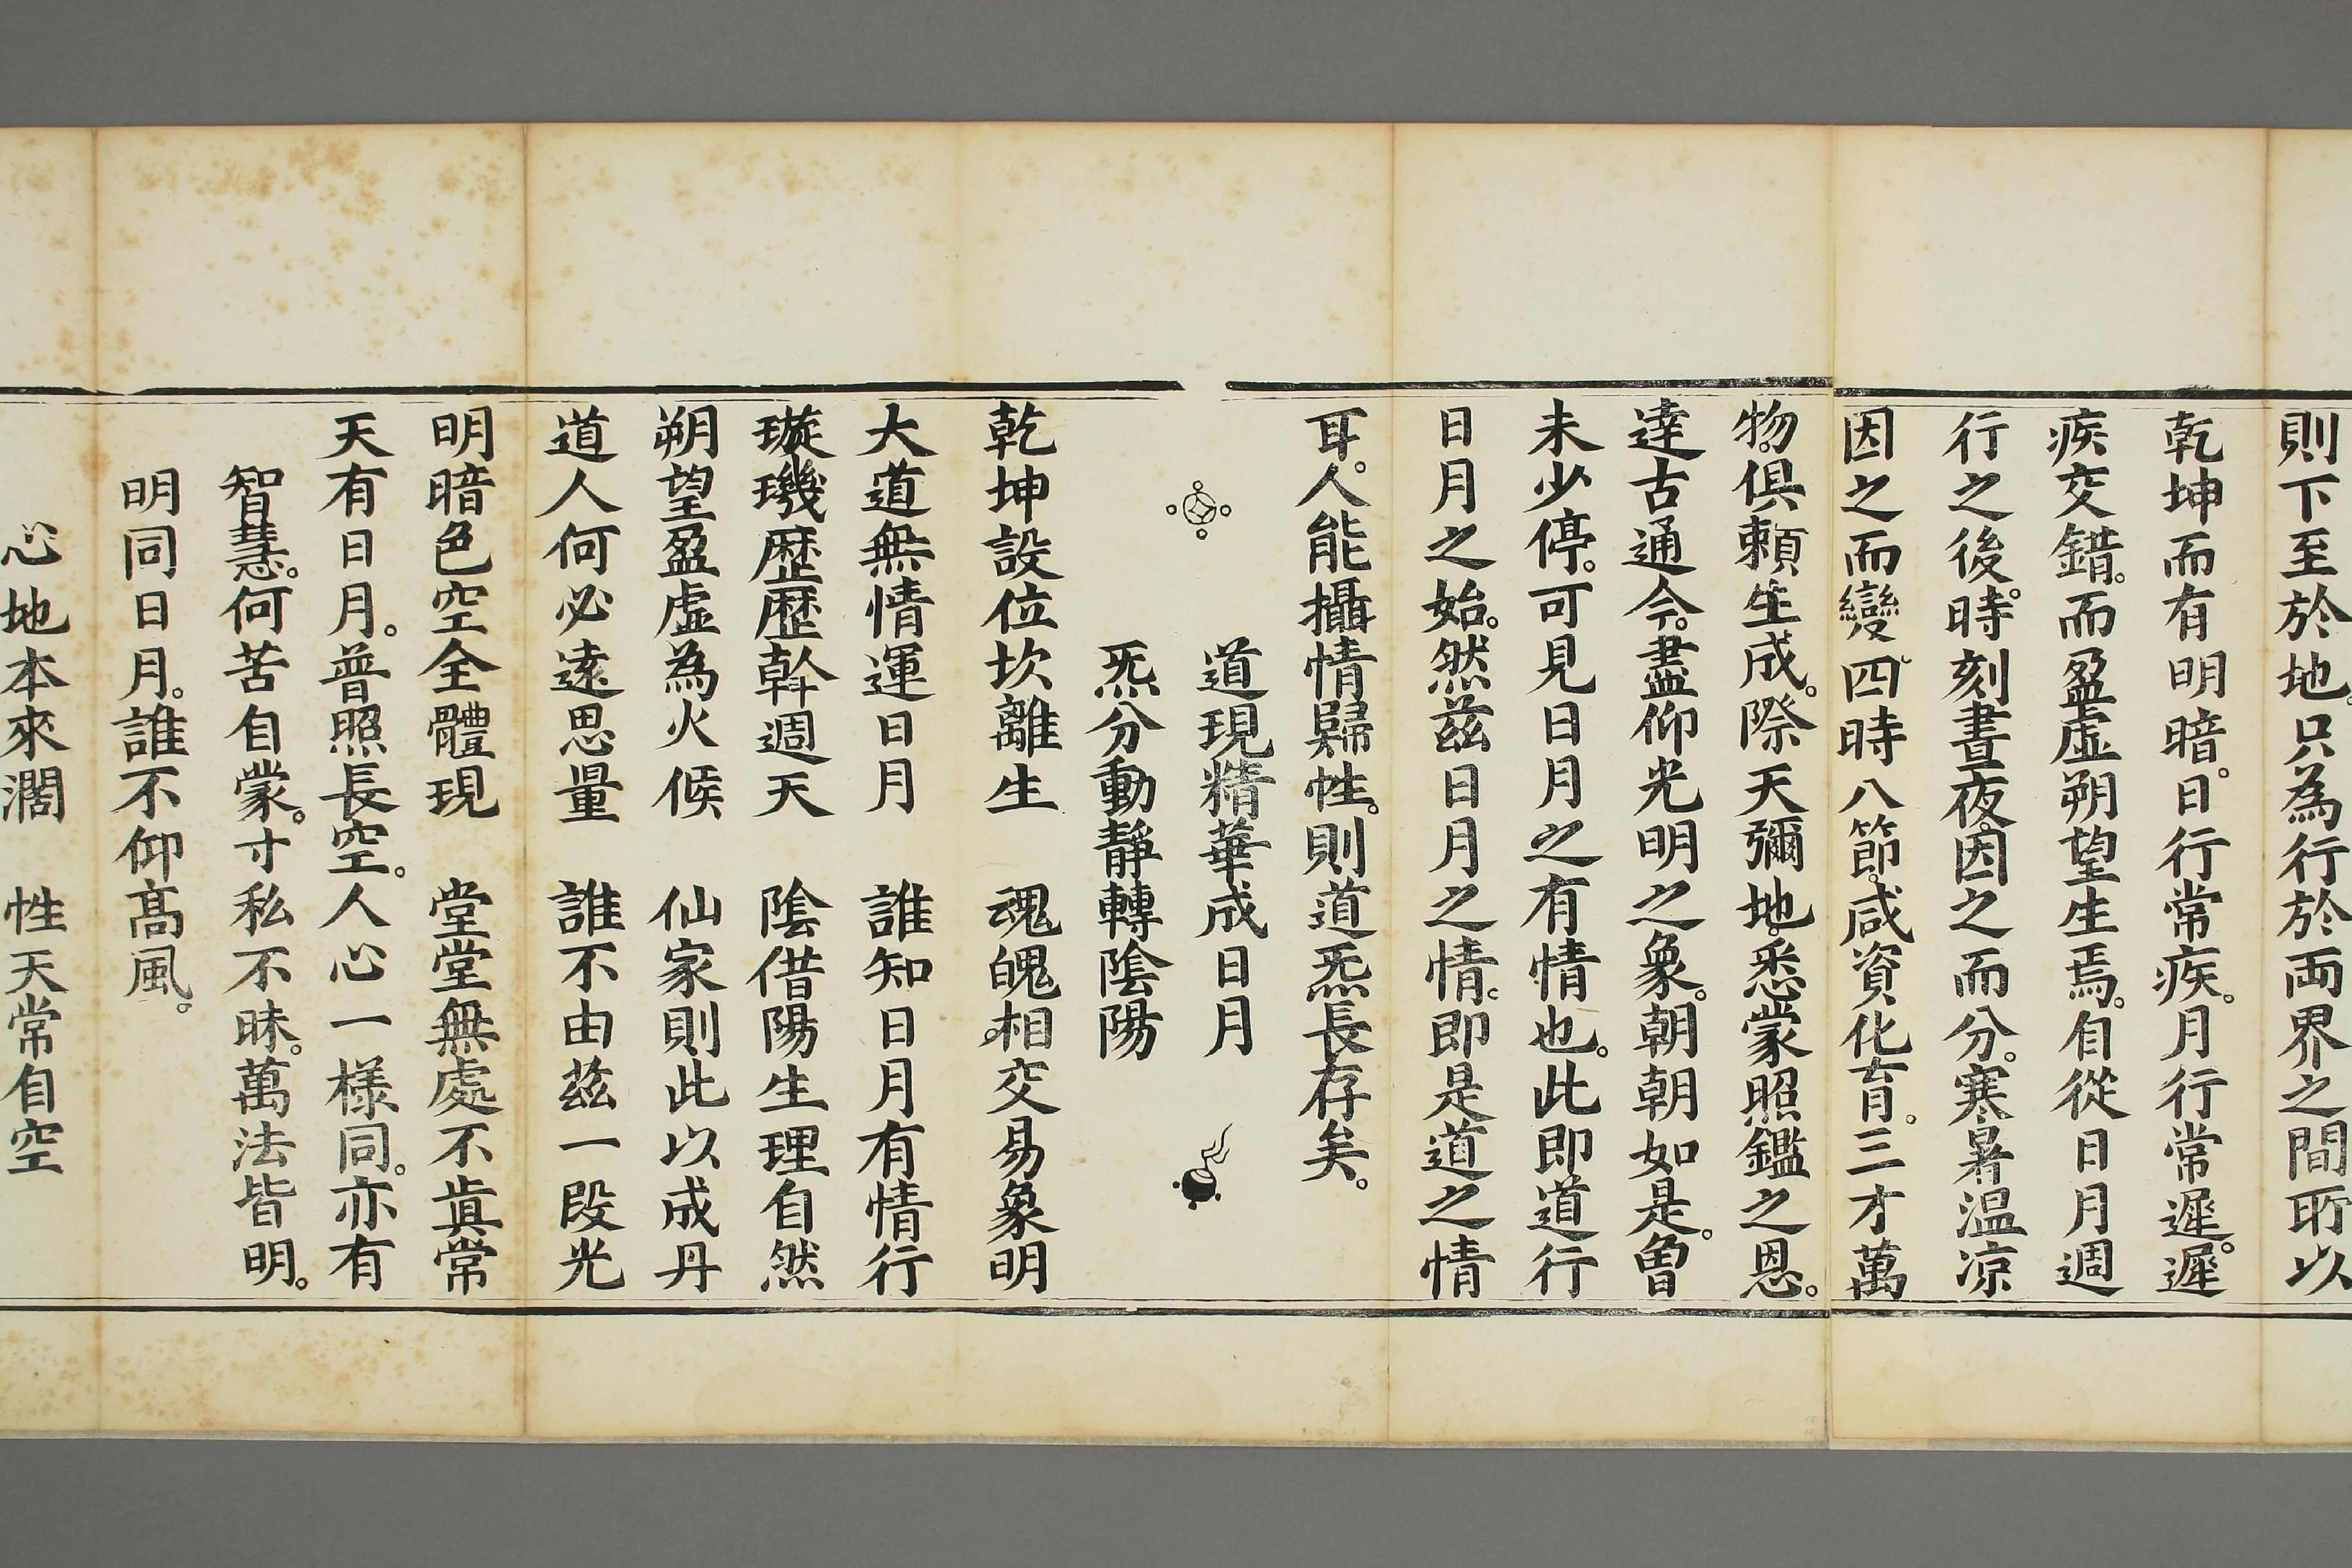 則下至於地。只為行於両界之間所以
乾坤而有明暗。日行常疾。月行常遲。遲
疾交錯。而盈虛朔望生焉。自從日月週
行之後。時刻晝夜。因之而分。寒暑温凉
因之而變。四時八節。咸資化育。三才萬
物。俱頼生成。際天彌地。悉蒙照鑑之恩。
達古通今。盡仰光明之象。朝朝如是。曾
未少停。可見日月之有情也。此即道行
日月之始。然茲日月之情。即是道之情
耳。人能攝情歸性。則道炁長存矣。
道現精華成日月
炁分動靜轉隂陽
乾坤設位坎離生　魂魄相。交易象明
大道無情運日月　誰知日月有情行
璇璣歷歷斡週天　隂借陽生理自然
朔望盈虛為火候　仙家則此以成丹
道人何必遠思量　誰不由茲一段光
明暗色空全體現　堂堂無處不真常
天有日月。普照長空。人心一様同。亦有
智慧。何苦自蒙。寸私不昧。萬法皆明。
明同日月。誰不仰髙風。
心地本來濶　性天常自空